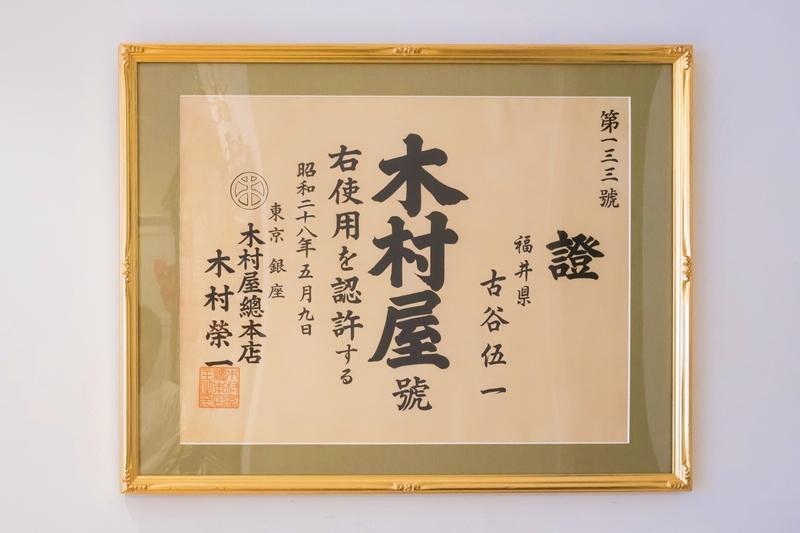 第一三三號
證
福井県
古谷伍一
木村屋號
右使用を認許する
昭和二十八年五月九日
東京銀座
木村屋總本店
木村榮一